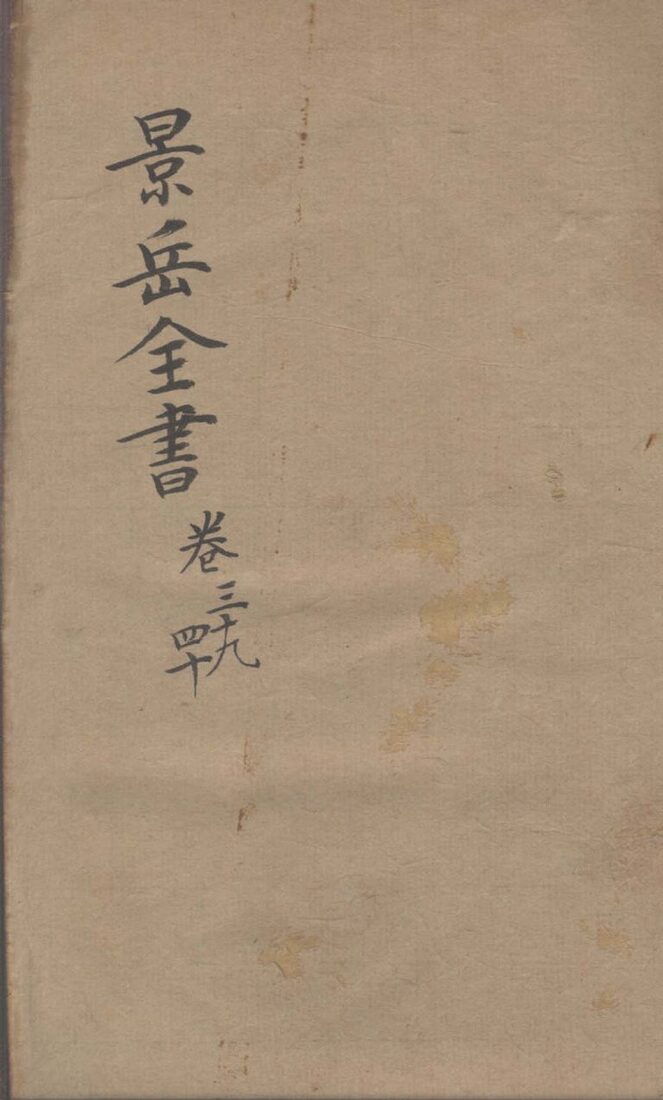 景岳全書
卷三十九
四十